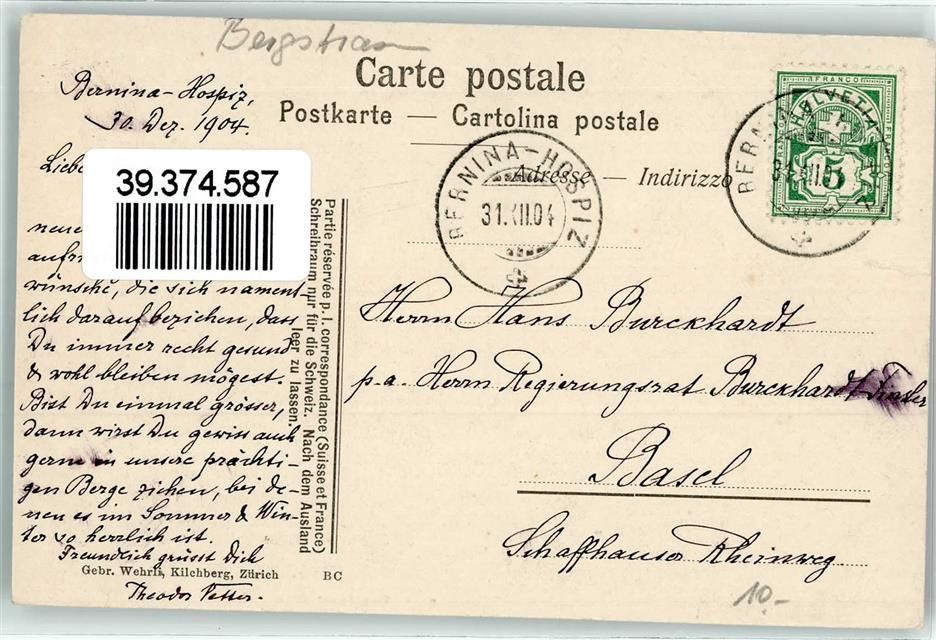 Carte postale
Postkarte — Cartolina postale
Adresse — Indirizzo
Bernina-Hospiz,
30. Dez. 1904.
39.374.587
neue
wünsche, die sich nament-
lich darauf beziehen, dass
Du immer recht gesund
& wohl bleiben mögest.
Bist Du einmal grösser,
dann wirst Du gewiss auch
gerne in unsere prächti-
gen Berge ziehen, bei de-
nen es im Sommer & Win-
ter so herrlich ist.
Freundlich grüsst Dich
Theodor
Gebr. Wehrli, Kilchberg, Zürich BC
Partie réservée p. l. correspondance (Suisse et France)
Schreibraum nur für die Schweiz. Nach dem Ausland
leer zu lassen.
BERNINA-HOSPIZ
31.XII.04
FRANCO
HELVETIA
5
Herrn Hans Burckhardt
p.a. Herrn Regierungsrat Burckhardt
Basel
Schaffhauser Rheinweg.
10.-